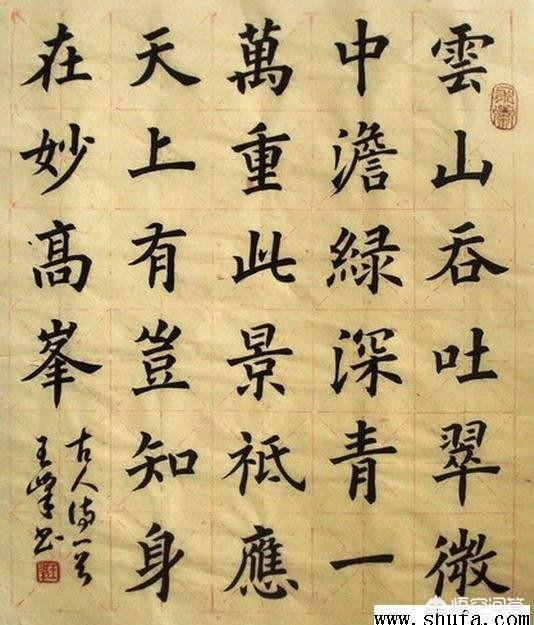 雲山吞吐翠微
中澹綠深青一
萬重此景祗應
天上有豈知身
在妙高峯
古人詩一首
王峰書
悟空问答
www.shufa.com